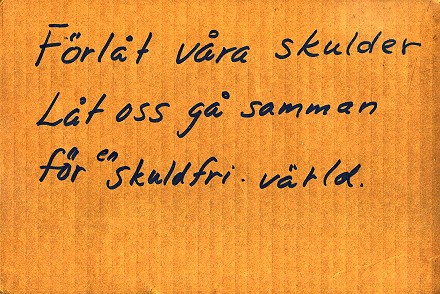 Förlåt våra skulder
Låt oss gå samman
för en skuldfri värld.